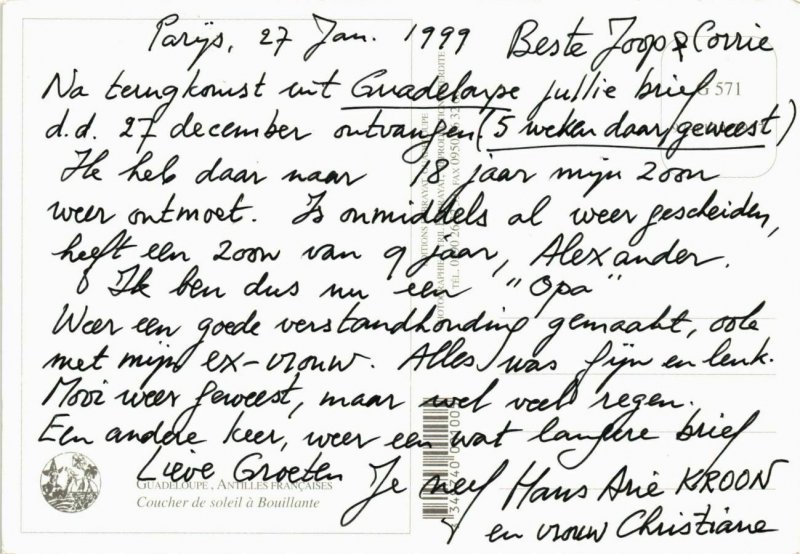 Parijs, 27 Jan. 1999 Beste Joop & Corrie
Na terugkomst uit Guadeloupe jullie brief
d.d. 27 december ontvangen (5 weken daar geweest)
Ik heb daar naar 18 jaar mijn zoon
weer ontmoet. Is onmiddels al weer gescheiden,
heeft een zoon van 9 jaar, Alexander.
Ik ben dus nu een "Opa"
Weer een goede verstandhouding gemaakt, ook
met mijn ex-vrouw. Alles was fijn en leuk.
Mooi weer geweest, maar wel veel regen.
Een andere keer, weer een wat langere brief
Lieve Groeten Je neef Hans Arie KROON
en vrouw Christiane
GUADELOUPE, ANTILLES FRANÇAISES
Coucher de soleil à Bouillante
G 571